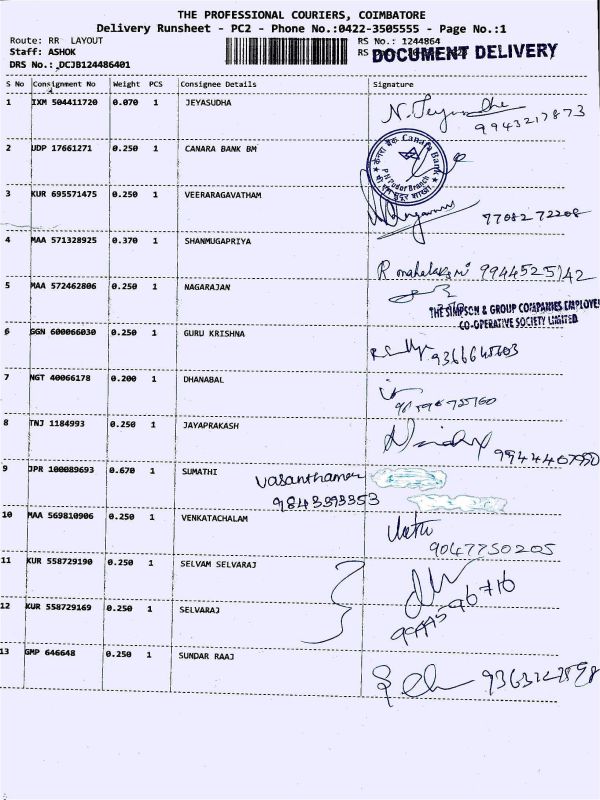 THE PROFESSIONAL COURIERS, COIMBATORE
Delivery Runsheet - PC2 - Phone No.:0422-3505555 - Page No.:1
Route: RR LAYOUT
RS No.: 1244864
Staff: ASHOK
RS
DOCUMENT DELIVERY
DRS No.: DCJB124486401
S No Consignment No Weight PCS Consignee Details Signature
1 IXM 504411720 0.070 1 JEYASUDHA
9943217873
2 UDP 17661271 0.250 1 CANARA BANK BM
केनरा बैंक Canara Bank
Branch
3 KUR 695571475 0.250 1 VEERARAGAVATHAM
7708272208
4 MAA 571328925 0.370 1 SHANMUGAPRIYA
R mahalakshmi 9944525142
5 MAA 572462806 0.250 1 NAGARAJAN
THE SIMPSON & GROUP COMPANIES EMPLOYE
CO-OPERATIVE SOCIETY LIMITED
6 GGN 600066030 0.250 1 GURU KRISHNA
7 NGT 40066178 0.200 1 DHANABAL
8 TNJ 1184993 0.250 1 JAYAPRAKASH
9 JPR 100089693 0.670 1 SUMATHI
9843393353
10 MAA 569810906 0.250 1 VENKATACHALAM
9047750205
11 KUR 558729190 0.250 1 SELVAM SELVARAJ
12 KUR 558729169 0.250 1 SELVARAJ
13 GMP 646648 0.250 1 SUNDAR RAAJ